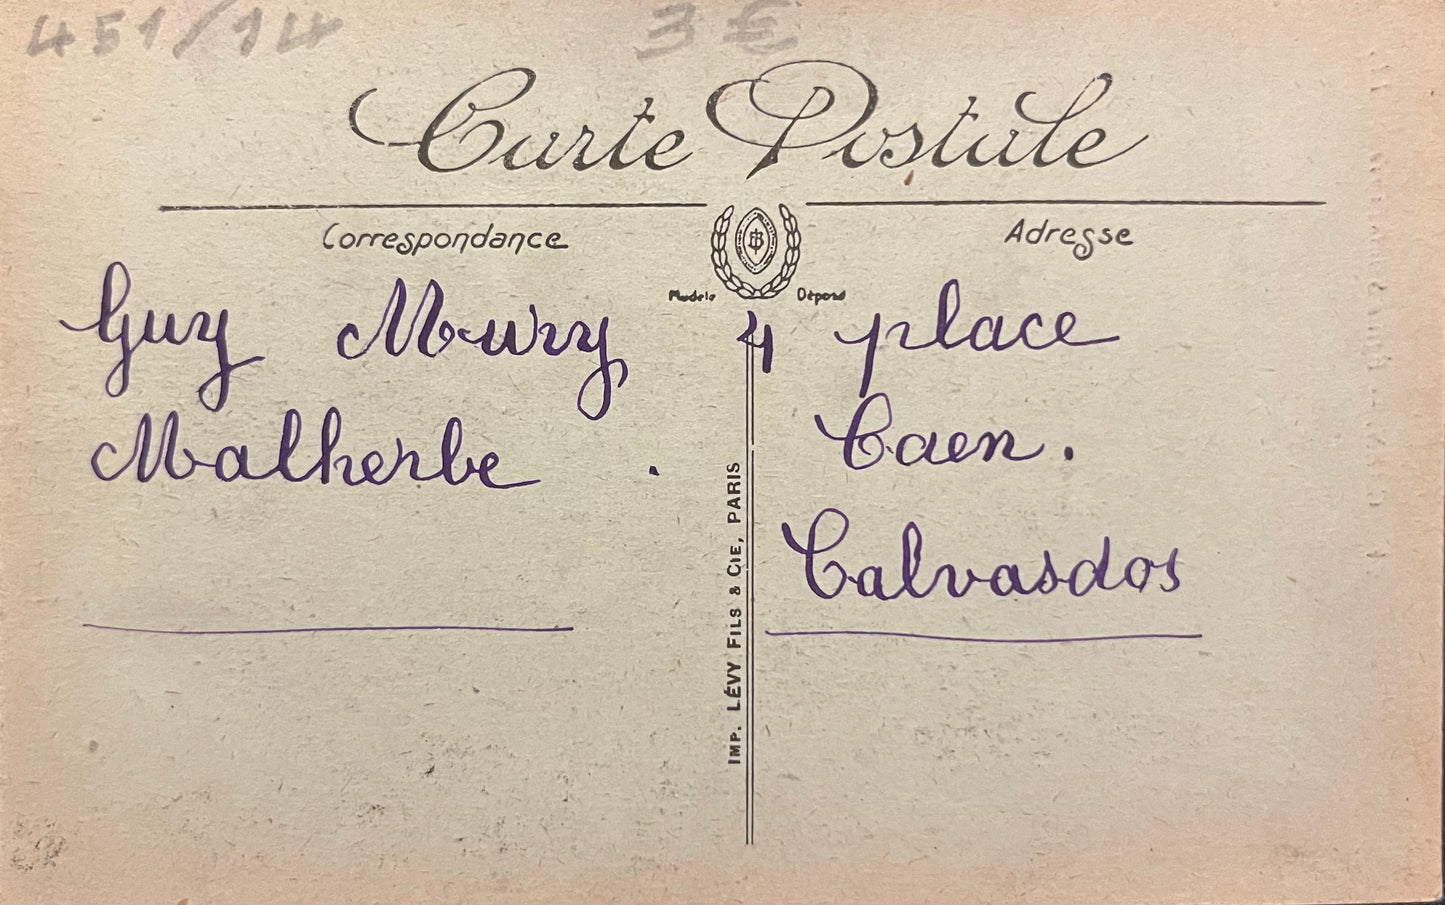 451/14 3 €
Carte Postale
Correspondance
Adresse
Modèle Déposé
Guy Mury, 4 place
Malherbe . Caen.
Calvasdos
IMP. LÉVY FILS & CIE, PARIS